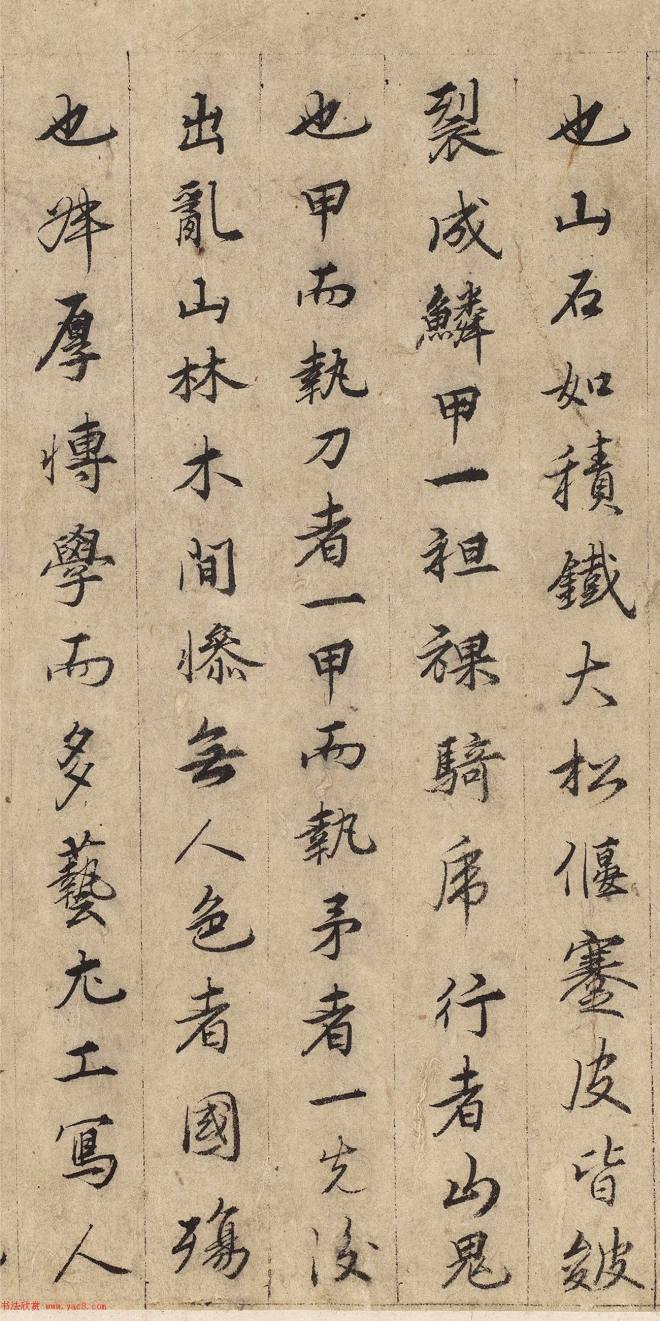 也山石如積鐵大松偃蹇皮皆皴
裂成鱗甲一袒裸騎虎行者山鬼
也甲而執刀者一甲而執矛者一先後
出亂山林木間慘無人色者國殤
也舜厚博學而多藝尤工寫人
书法欣赏 www.yac8.com